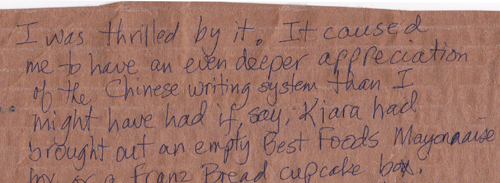 I was thrilled by it. It caused
me to have an even deeper appreciation
of the Chinese writing system than I
might have had if, say, Kiara had
brought out an empty Best Foods Mayonnaise
or a Franz Bread cupcake box.